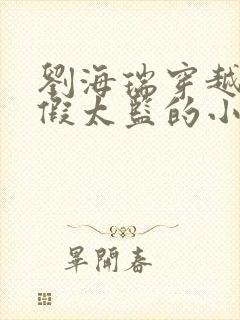 劉海瑞穿越
假太監的小
畢開春